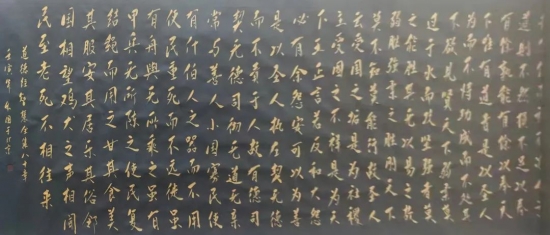 道則不然損不足以奉
有餘孰能有餘以奉天
下唯有道者是以聖人
為而不恃功成而不處其
不欲見賢天下莫柔弱
過于水而攻堅強者莫
之能勝以其無以易之
弱勝強柔之勝剛天下
莫不知莫能行故聖人
云受國之垢是為社稷
主受國之不祥是為天
下王正言若反和大怨
必有余怨安可以為善
是以聖人執左契
而不責于人故有德司
契无德司徹天道无親
常与善人小國寡民使
有什伯人之器而不用
使民重死而不遠徙雖
有舟輿无所乘之雖有
甲兵无所陳之使民復
結繩而用之甘其食美
其服安其居樂其俗鄰
國相望雞犬之聲相聞
民至老死不相往來
道德經
壬寅年